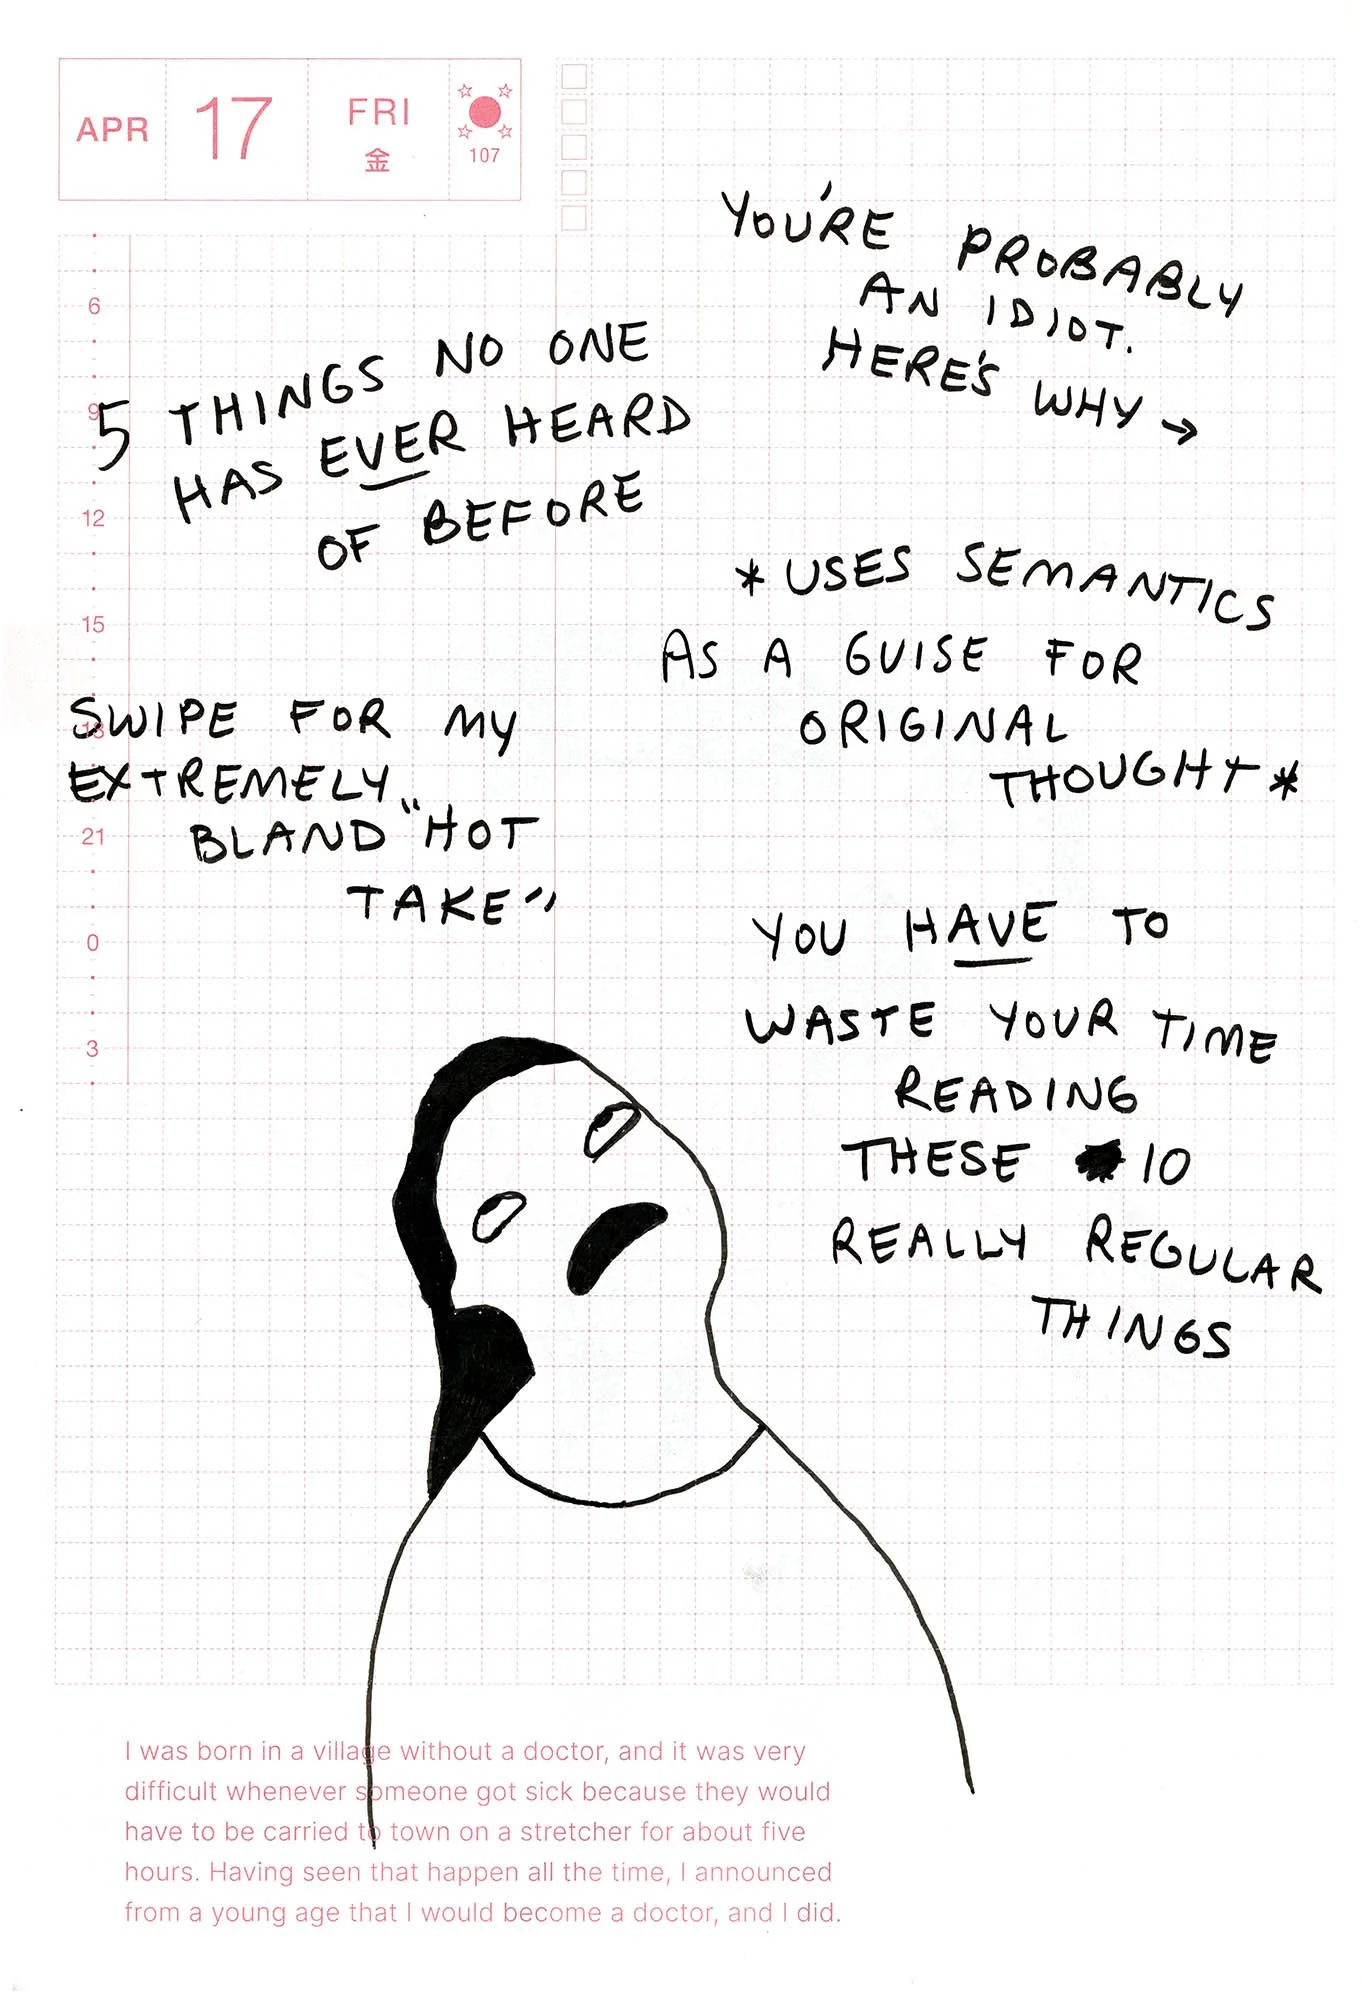 APR 17 FRI
金
107
YOU'RE PROBABLY
AN IDIOT.
HERE'S WHY →
5 THINGS NO ONE
HAS EVER HEARD
OF BEFORE
*USES SEMANTICS
AS A GUISE FOR
ORIGINAL
THOUGHT*
SWIPE FOR MY
EXTREMELY
BLAND "HOT
TAKE"
YOU HAVE TO
WASTE YOUR TIME
READING
THESE 10
REALLY REGULAR
THINGS
6
9
12
15
18
21
0
3
I was born in a village without a doctor, and it was very
difficult whenever someone got sick because they would
have to be carried to town on a stretcher for about five
hours. Having seen that happen all the time, I announced
from a young age that I would become a doctor, and I did.